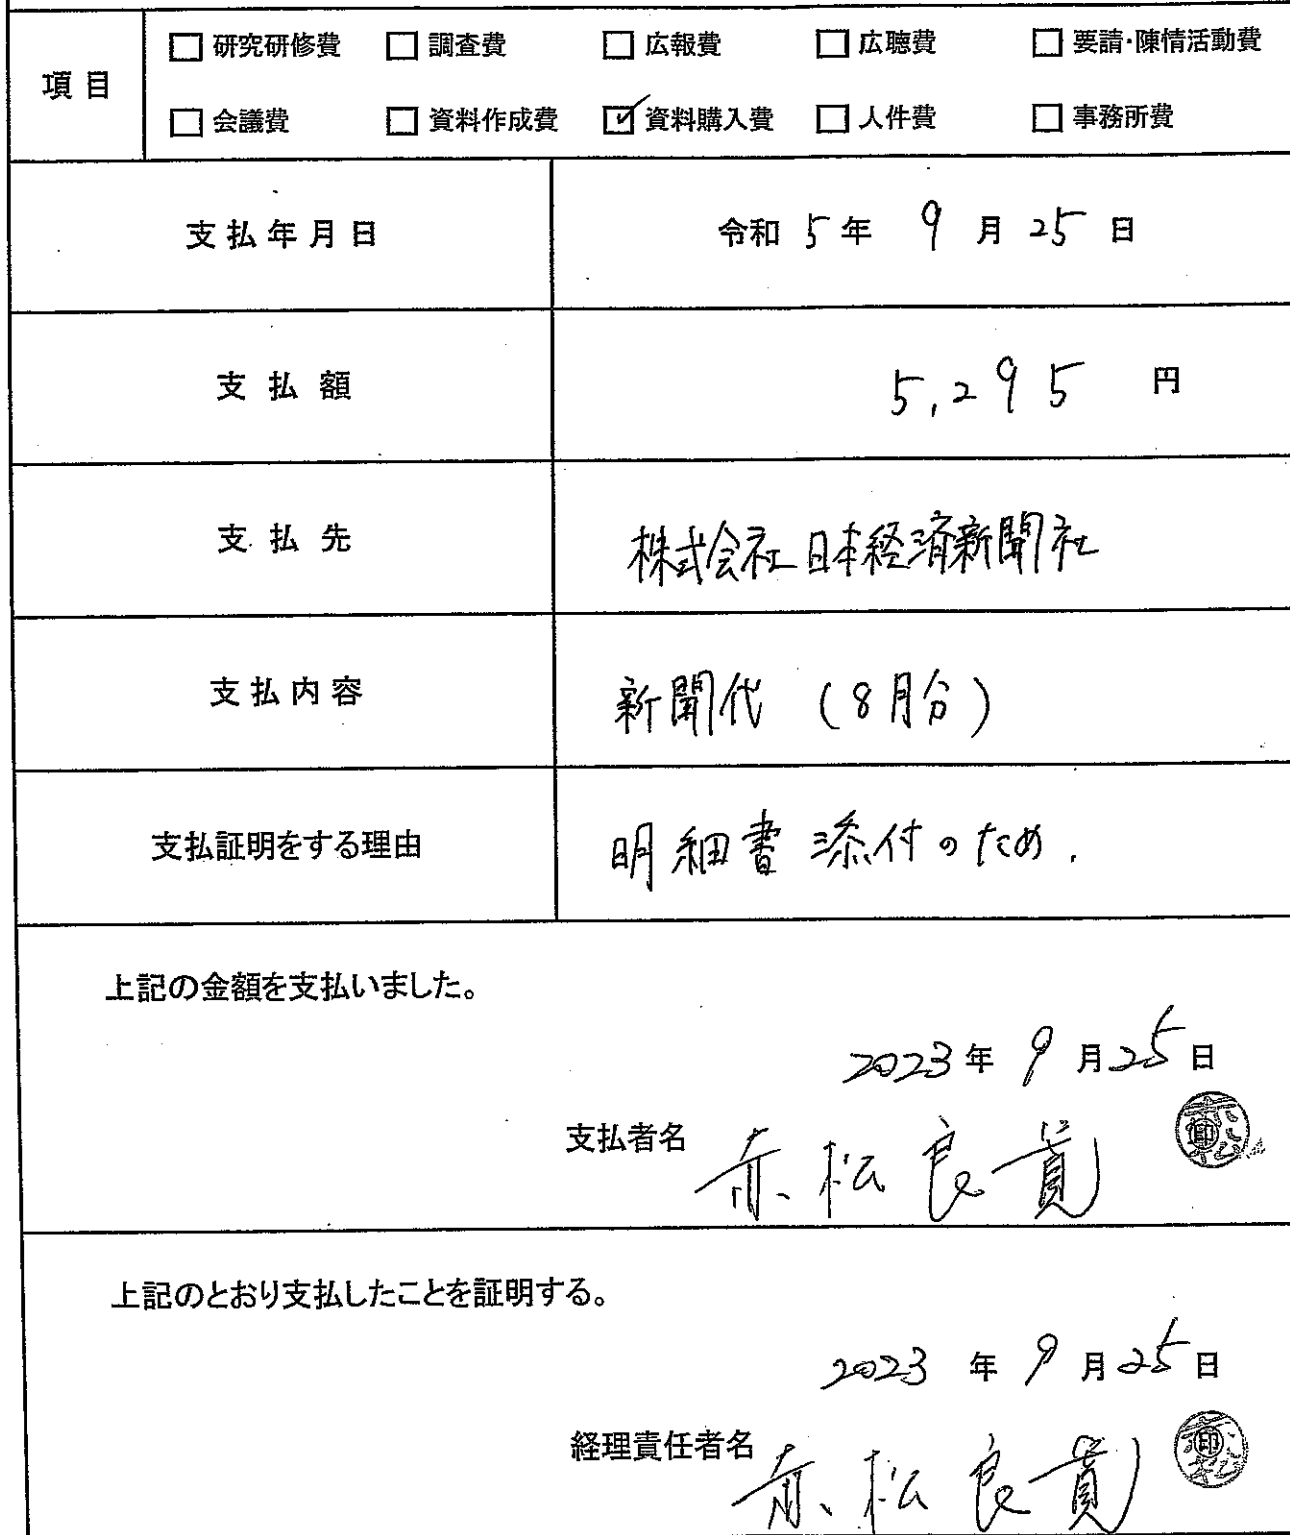 項目
☐ 研究研修費 ☐ 調査費 ☐ 広報費 ☐ 広聴費 ☐ 要請・陳情活動費
☐ 会議費 ☐ 資料作成費 ☑ 資料購入費 ☐ 人件費 ☐ 事務所費
支払年月日 令和 5 年 9 月 25 日
支払額 5,295 円
支払先 株式会社日本経済新聞社
支払内容 新聞代 (8月分)
支払証明をする理由 明細書添付のため.
上記の金額を支払いました。
2023年 9 月 25 日
支払者名 赤松良寛
上記のとおり支払したことを証明する。
2023 年 9 月 25 日
経理責任者名 赤松良寛